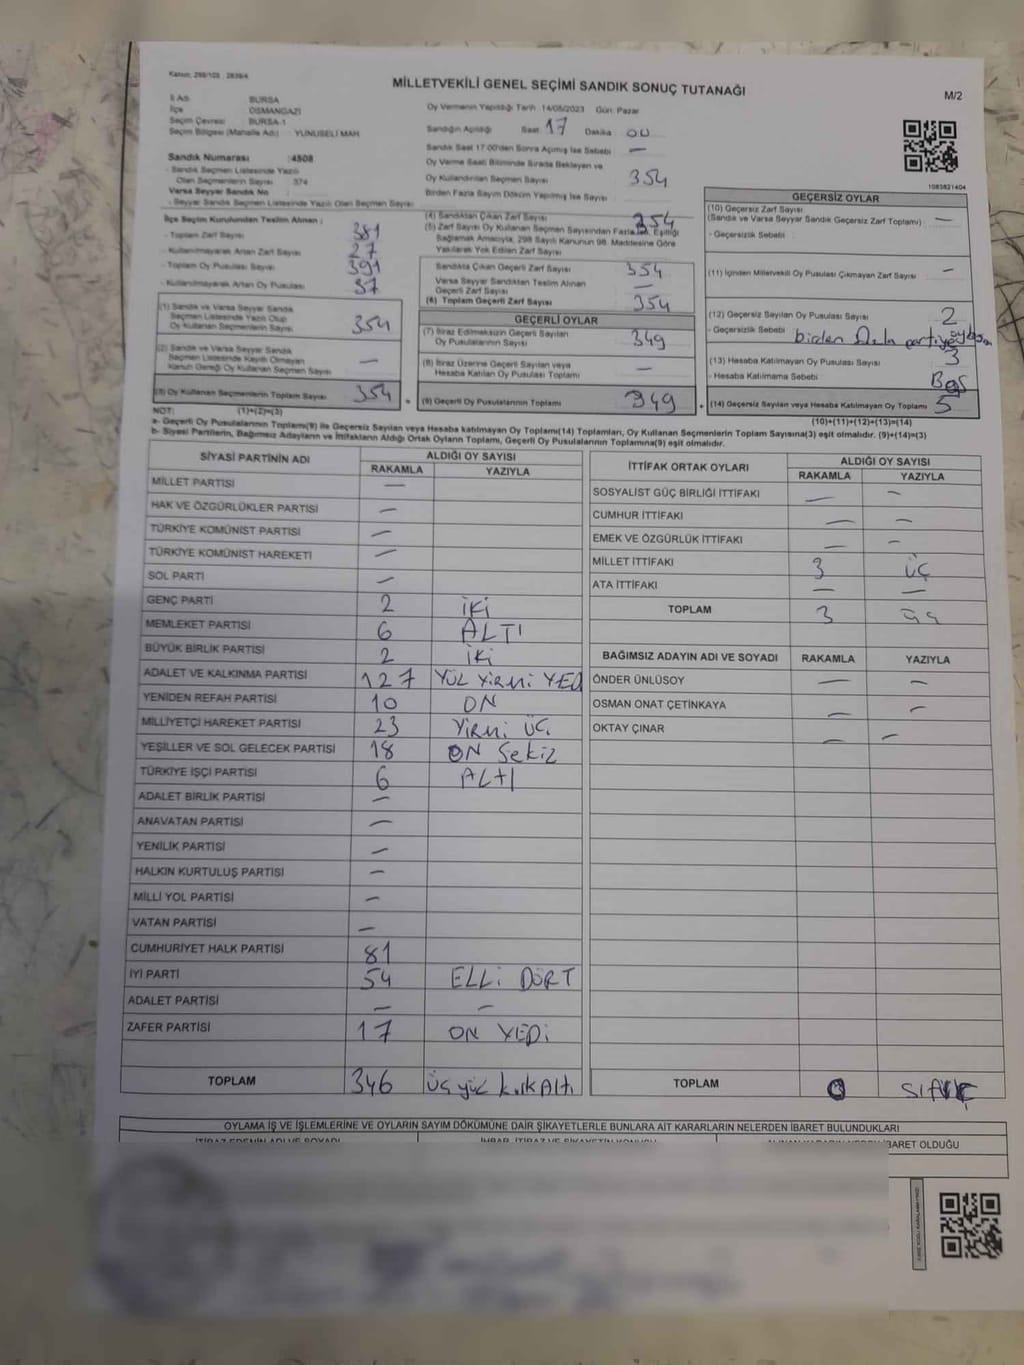 Kanun: 298/105 ; 2839/4
MİLLETVEKİLİ GENEL SEÇİMİ SANDIK SONUÇ TUTANAĞI
M/2
İl Adı : BURSA
İlçe : OSMANGAZİ
Seçim Çevresi : BURSA-1
Seçim Bölgesi (Mahalle Adı) : YUNUSELİ MAH.
Oy Vermenin Yapıldığı Tarih :14/05/2023 Gün: Pazar
Sandığın Açıldığı Saat: 17 Dakika 00
Sandık Saat 17:00'den Sonra Açılmış İse Sebebi —
Oy Verme Saati Bitiminde Sırada Bekleyen ve
Oy Kullandırılan Seçmen Sayısı 354
Birden Fazla Sayım Döküm Yapılmış İse Sayısı
1083821404
Sandık Numarası :4508
- Sandık Seçmen Listesinde Yazılı
Olan Seçmenlerin Sayısı : 374
Varsa Seyyar Sandık No :
- Seyyar Sandık Seçmen Listesinde Yazılı Olan Seçmen Sayısı
İlçe Seçim Kurulundan Teslim Alınan ;
- Toplam Zarf Sayısı 381
- Kullanılmayarak Artan Zarf Sayısı 27
- Toplam Oy Pusulası Sayısı 391
- Kullanılmayarak Artan Oy Pusulası 37
(1) Sandık ve Varsa Seyyar Sandık
Seçmen Listesinde Yazılı Olup
Oy Kullanan Seçmenlerin Sayısı 354
(2) Sandık ve Varsa Seyyar Sandık
Seçmen Listesinde Kayıtlı Olmayan
Kanun Gereği Oy Kullanan Seçmen Sayısı —
(3) Oy Kullanan Seçmenlerin Toplam Sayısı 354
(4) Sandıktan Çıkan Zarf Sayısı 354
(5) Zarf Sayısı Oy Kullanan Seçmen Sayısından Fazla İse, Eşitliği
Sağlamak Amacıyla, 298 Sayılı Kanunun 98. Maddesine Göre
Yakılarak Yok Edilen Zarf Sayısı
Sandıkta Çıkan Geçerli Zarf Sayısı 354
Varsa Seyyar Sandıktan Teslim Alınan
Geçerli Zarf Sayısı —
(6) Toplam Geçerli Zarf Sayısı 354
GEÇERLİ OYLAR
(7) İtiraz Edilmeksizin Geçerli Sayılan
Oy Pusulalarının Sayısı 349
(8) İtiraz Üzerine Geçerli Sayılan veya
Hesaba Katılan Oy Pusulası Toplamı —
= (9) Geçerli Oy Pusulalarının Toplamı 349
GEÇERSİZ OYLAR
(10) Geçersiz Zarf Sayısı
(Sandık ve Varsa Seyyar Sandık Geçersiz Zarf Toplamı) —
- Geçersizlik Sebebi :
(11) İçinden Milletvekili Oy Pusulası Çıkmayan Zarf Sayısı —
(12) Geçersiz Sayılan Oy Pusulası Sayısı 2
- Geçersizlik Sebebi birden
(13) Hesaba Katılmayan Oy Pusulası Sayısı 3
- Hesaba Katılmama Sebebi Boş
+ (14) Geçersiz Sayılan veya Hesaba Katılmayan Oy Toplamı 5
NOT: (1)+(2)=(3)
(10)+(11)+(12)+(13)=(14)
a- Geçerli Oy Pusulalarının Toplamı(9) ile Geçersiz Sayılan veya Hesaba Katılmayan Oy Toplamı(14) Toplamları, Oy Kullanan Seçmenlerin Toplam Sayısına(3) eşit olmalıdır. (9)+(14)=(3)
b- Siyasi Partilerin, Bağımsız Adayların ve İttifakların Aldığı Ortak Oyların Toplamı, Geçerli Oy Pusulalarının Toplamına(9) eşit olmalıdır.
SİYASİ PARTİNİN ADI ALDIĞI OY SAYISI
RAKAMLA YAZIYLA
MİLLET PARTİSİ —
HAK VE ÖZGÜRLÜKLER PARTİSİ —
TÜRKİYE KOMÜNİST PARTİSİ —
TÜRKİYE KOMÜNİST HAREKETİ —
SOL PARTİ —
GENÇ PARTİ 2 İKİ
MEMLEKET PARTİSİ 6 ALTI
BÜYÜK BİRLİK PARTİSİ 2 İKİ
ADALET VE KALKINMA PARTİSİ 127 YÜZ YİRMİ YEDİ
YENİDEN REFAH PARTİSİ 10 ON
MİLLİYETÇİ HAREKET PARTİSİ 23 YİRMİ ÜÇ
YEŞİLLER VE SOL GELECEK PARTİSİ 18 ON Sekiz
TÜRKİYE İŞÇİ PARTİSİ 6 ALTI
ADALET BİRLİK PARTİSİ —
ANAVATAN PARTİSİ —
YENİLİK PARTİSİ —
HALKIN KURTULUŞ PARTİSİ —
MİLLİ YOL PARTİSİ —
VATAN PARTİSİ —
CUMHURİYET HALK PARTİSİ 81
İYİ PARTİ 54 ELLİ DÖRT
ADALET PARTİSİ — —
ZAFER PARTİSİ 17 ON YEDİ
TOPLAM 346 üç yüz kırk Altı
İTTİFAK ORTAK OYLARI ALDIĞI OY SAYISI
RAKAMLA YAZIYLA
SOSYALİST GÜÇ BİRLİĞİ İTTİFAKI — —
CUMHUR İTTİFAKI — —
EMEK VE ÖZGÜRLÜK İTTİFAKI — —
MİLLET İTTİFAKI 3 ÜÇ
ATA İTTİFAKI — —
TOPLAM 3 üç
BAĞIMSIZ ADAYIN ADI VE SOYADI RAKAMLA YAZIYLA
ÖNDER ÜNLÜSOY — —
OSMAN ONAT ÇETİNKAYA — —
OKTAY ÇINAR — —
TOPLAM 0
OYLAMA İŞ VE İŞLEMLERİNE VE OYLARIN SAYIM DÖKÜMÜNE DAİR ŞİKAYETLERLE BUNLARA AİT KARARLARIN NELERDEN İBARET BULUNDUKLARI
İTİRAZ EDENİN ADI VE SOYADI İHBAR, İTİRAZ VE ŞİKAYETİN KONUSU ALINAN KARARIN NEDEN İBARET OLDUĞU